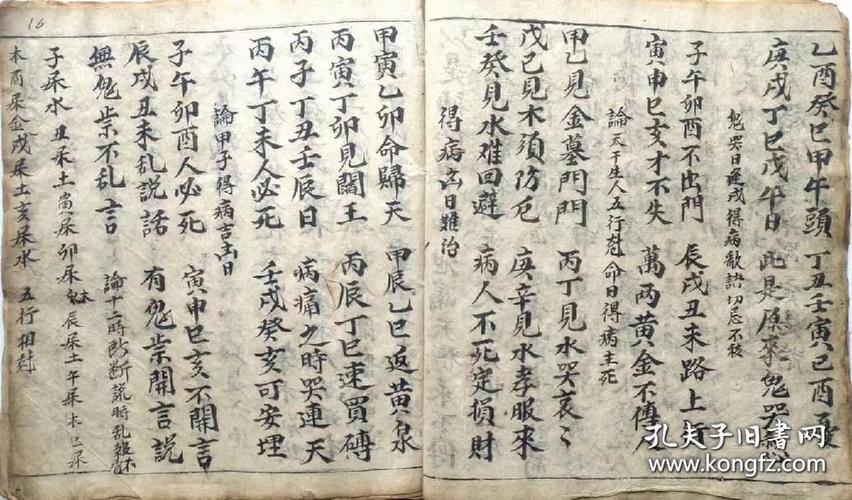 乙酉癸巳甲午頭 丁丑壬寅己酉
庚戌丁巳戊午日 此是原來鬼哭
鬼哭日逢戌得病歌訣切忌不移
子午卯酉不出門 辰戌丑未路上行
寅申巳亥才不失 萬两黃金不傳
論天干生人五行尅命日得病主死
甲乙見金墓門門 丙丁見水哭哀哀
戊己見木須防危 庚辛見水孝服來
壬癸見水難回避 病人不死定損財
得病凶日難治
甲寅乙卯命歸天 甲辰乙巳返黃泉
丙寅丁卯見閻王 丙辰丁巳速買磚
丙子丁丑壬辰日 病痛之時哭連天
丙午丁未人必死 壬戌癸亥可安埋
論甲子得病吉凶日
子午卯酉人必死 寅申巳亥不開言
辰戌丑未乱說話 有鬼祟開言說
無鬼祟不乱言 論十二時所斷謊時乱報
子屎水 丑屎土 寅屎 卯屎木 辰屎土 午屎木 巳屎
木酉屎金戌屎土亥屎水 五行相尅
16
孔夫子旧書网
www.kongfz.com